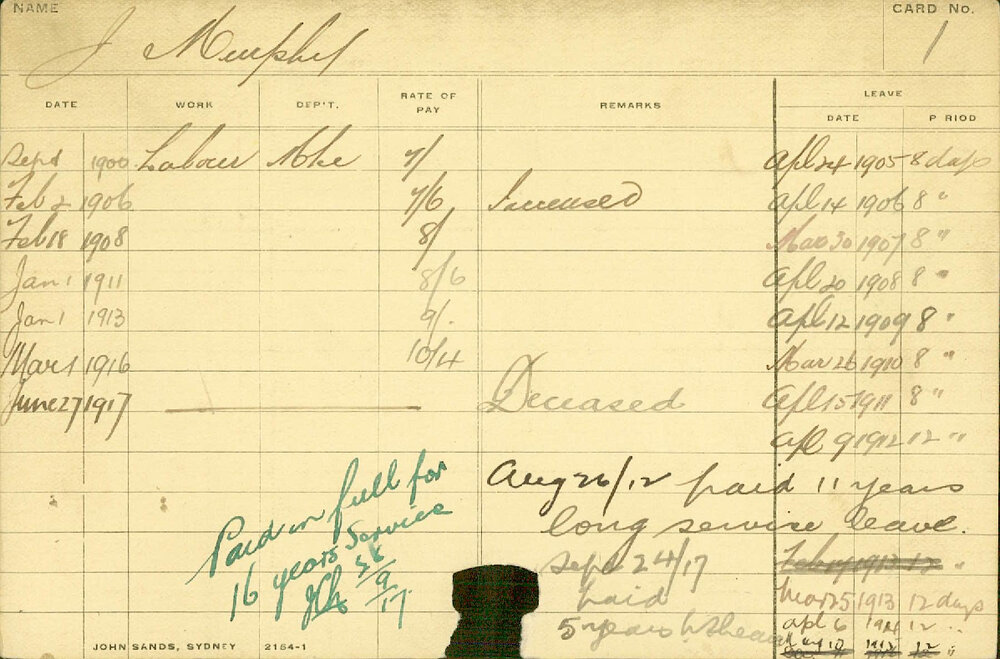 NAME
CARD No.
J Murphy
1
DATE WORK DEP'T. RATE OF PAY REMARKS LEAVE
DATE P RIOD
Sept 1900 Labour 7/ Apl 24 1905 8 days
Feb 2 1906 7/6 Increased Apl 14 1906 8 "
Feb 18 1908 8/ Mar 30 1907 8 "
Jan 1 1911 8/6 Apl 20 1908 8 "
Jan 1 1913 9/. Apl 12 1909 8 "
Mar 1 1916 10/4 Mar 26 1910 8 "
June 27 1917 Deceased Apl 15 1911 8 "
Apl 9 1912 12 "
Aug 26/12 paid 11 years
long service leave.
Paid in full for
16 years Service
28/9/17
Sept 24/17
paid
5 years
Feb 1913 12 "
Mar 25 1913 12 days
Apl 6 1914 12 "
12 "
JOHN SANDS, SYDNEY 2154-1